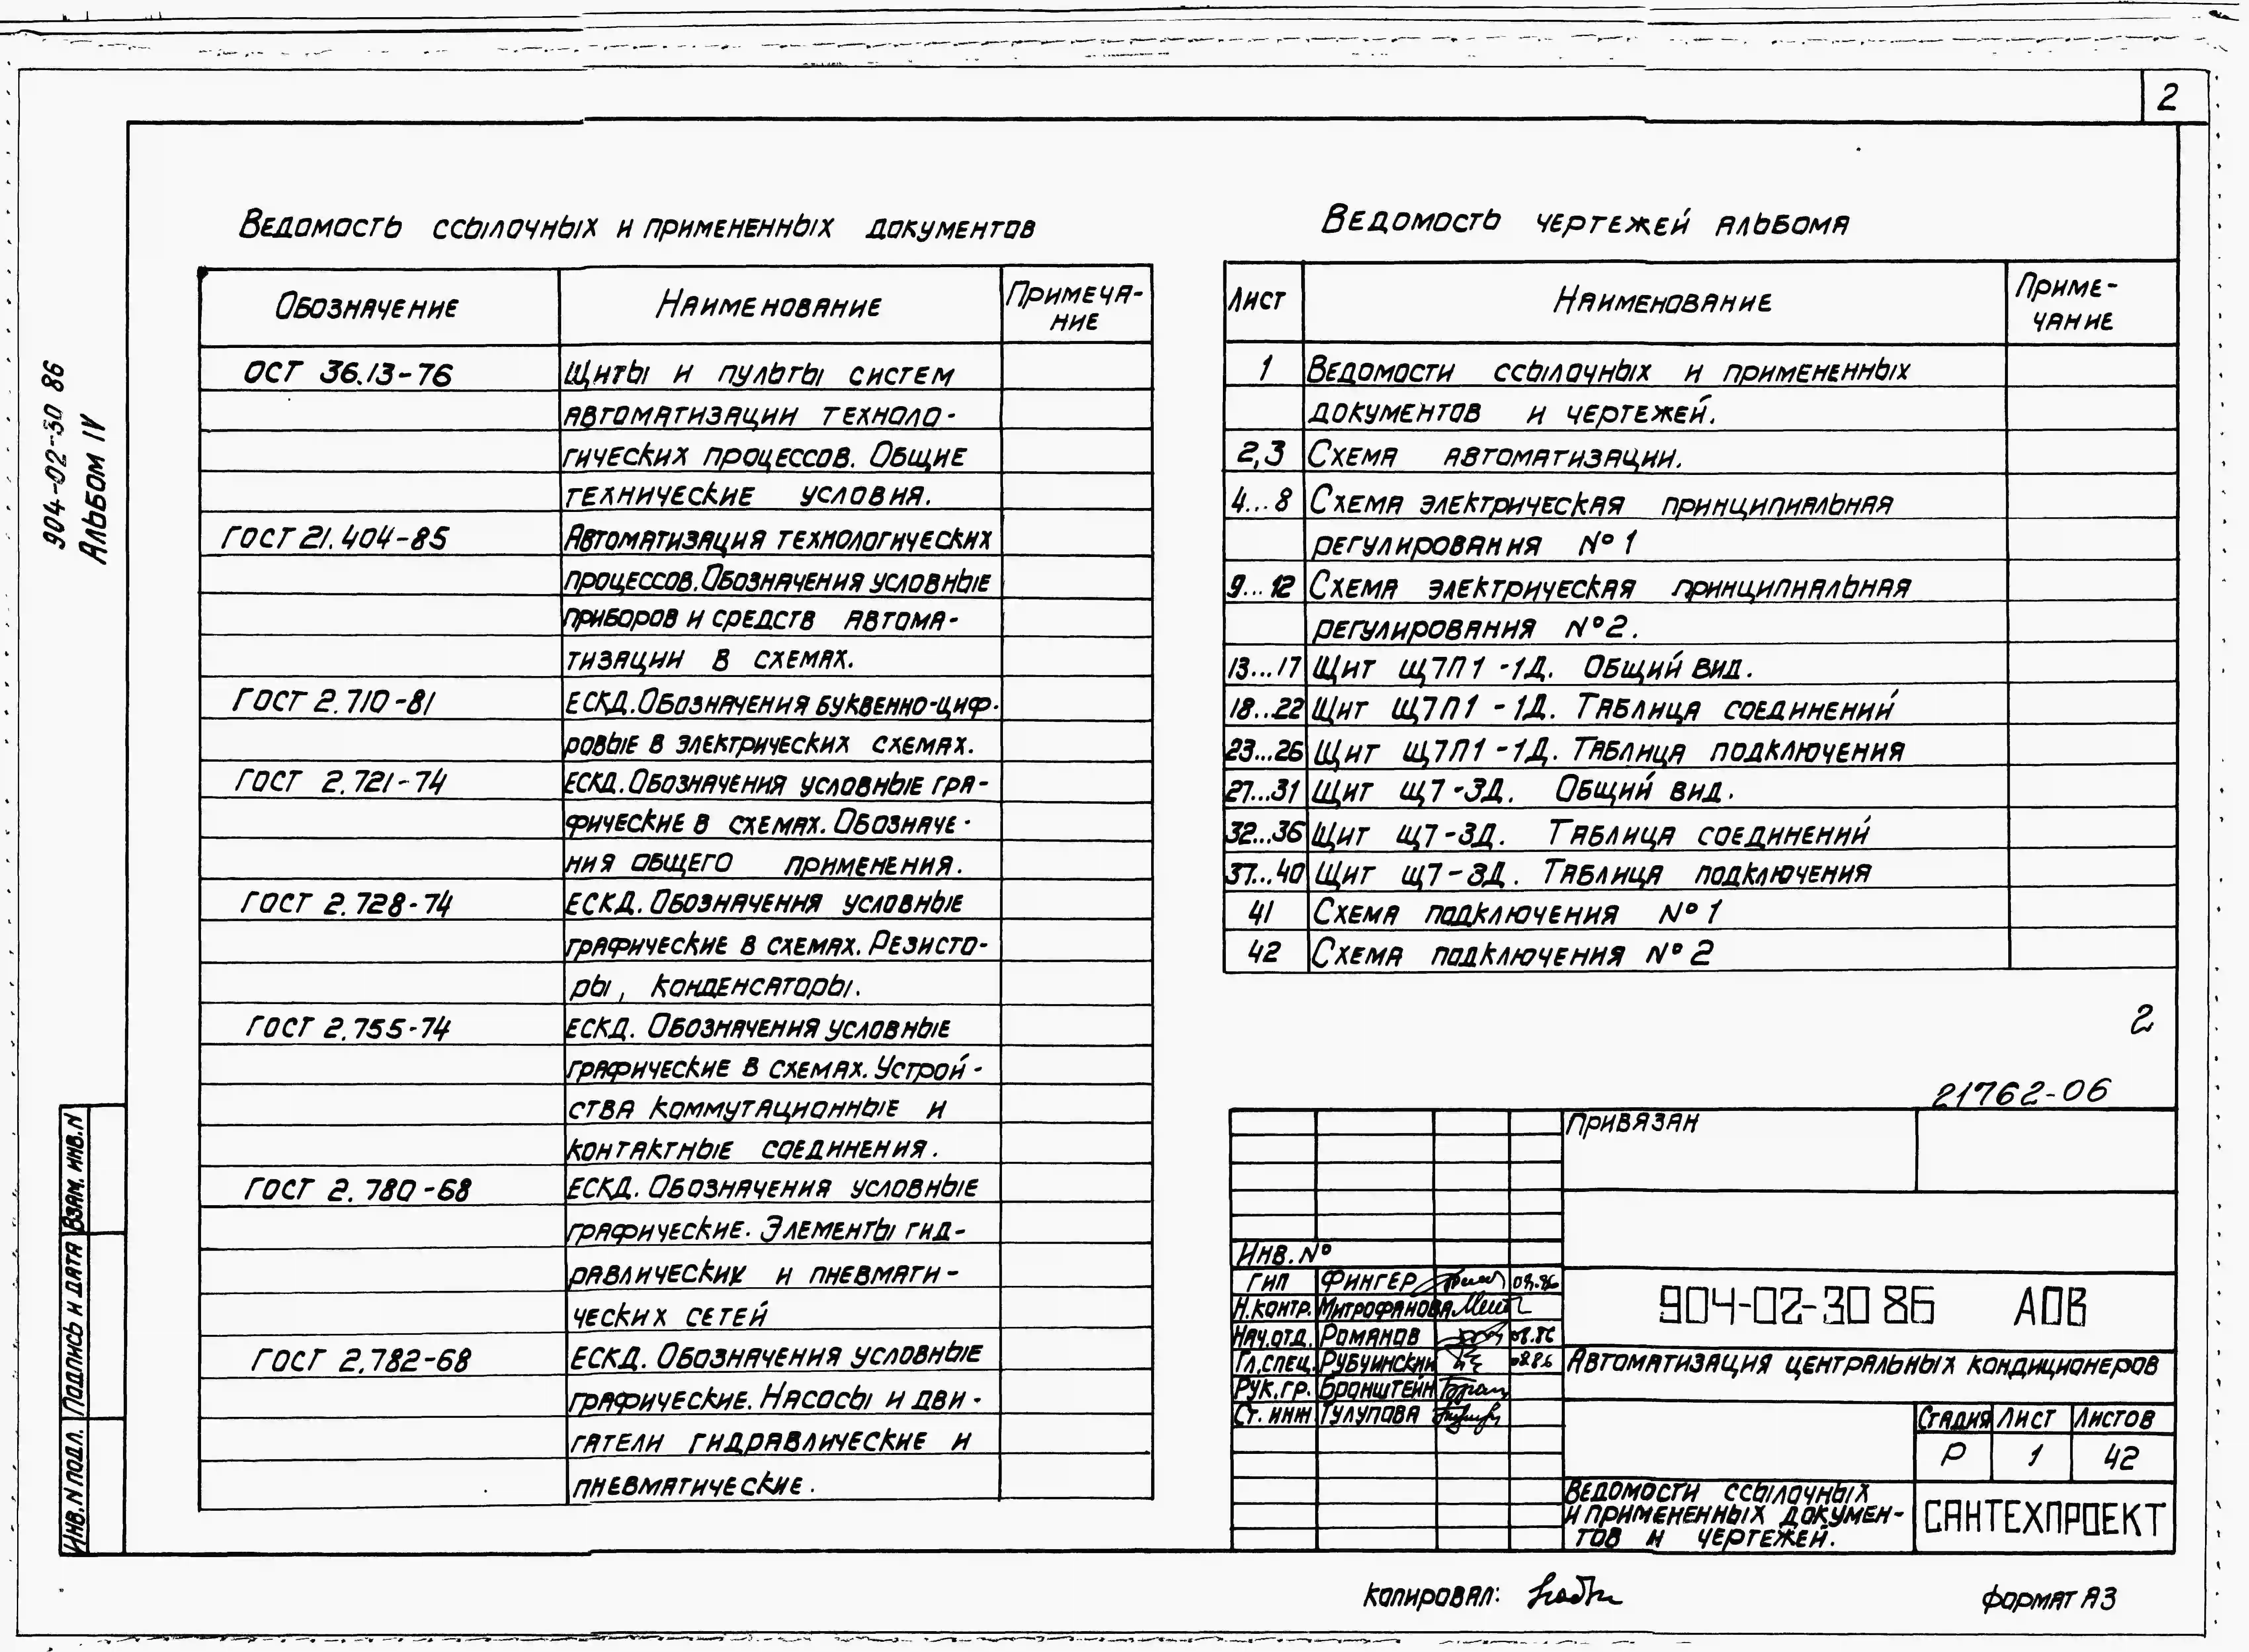 2
904-02-30 86
Альбом IV
Ведомость ссылочных и примененных документов
Обозначение Наименование Примеча-
ние
ОСТ 36.13-76 Щиты и пульты систем
автоматизации техноло-
гических процессов. Общие
технические условия.
ГОСТ 21.404-85 Автоматизация технологических
процессов. Обозначения условные
приборов и средств автома-
тизации в схемах.
ГОСТ 2.710-81 ЕСКД. Обозначения буквенно-циф-
ровые в электрических схемах.
ГОСТ 2.721-74 ЕСКД. Обозначения условные гра-
фические в схемах. Обозначе-
ния общего применения.
ГОСТ 2.728-74 ЕСКД. Обозначения условные
графические в схемах. Резисто-
ры, конденсаторы.
ГОСТ 2.755-74 ЕСКД. Обозначения условные
графические в схемах. Устрой-
ства коммутационные и
контактные соединения.
ГОСТ 2.780-68 ЕСКД. Обозначения условные
графические. Элементы гид-
равлических и пневмати-
ческих сетей
ГОСТ 2.782-68 ЕСКД. Обозначения условные
графические. Насосы и дви-
гатели гидравлические и
пневматические.
Ведомость чертежей альбома
Лист Наименование Приме-
чание
1 Ведомости ссылочных и примененных
документов и чертежей.
2,3 Схема автоматизации.
4...8 Схема электрическая принципиальная
регулирования N°1
9...12 Схема электрическая принципиальная
регулирования N°2.
13...17 Щит Щ7П1-1Д. Общий вид.
18...22 Щит Щ7П1-1Д. Таблица соединений
23...26 Щит Щ7П1-1Д. Таблица подключения
27...31 Щит Щ7-3Д. Общий вид.
32...36 Щит Щ7-3Д. Таблица соединений
37...40 Щит Щ7-3Д. Таблица подключения
41 Схема подключения N°1
42 Схема подключения N°2
2
21762-06
Привязан
Инв. N°
ГИП Фингер 08.86
Н.контр. Митрофанова
Нач.отд. Романов 08.86
Гл.спец. Рубчинский 08.86
Рук.гр. Бронштейн
Ст. инж Тулупова
904-02-30 86 АОВ
Автоматизация центральных кондиционеров
Стадия Лист Листов
Р 1 42
Ведомости ссылочных
и примененных докумен-
тов и чертежей.
САНТЕХПРОЕКТ
Взам. инв. N
Подпись и дата
Инв. N подл.
Копировал:
Формат А3